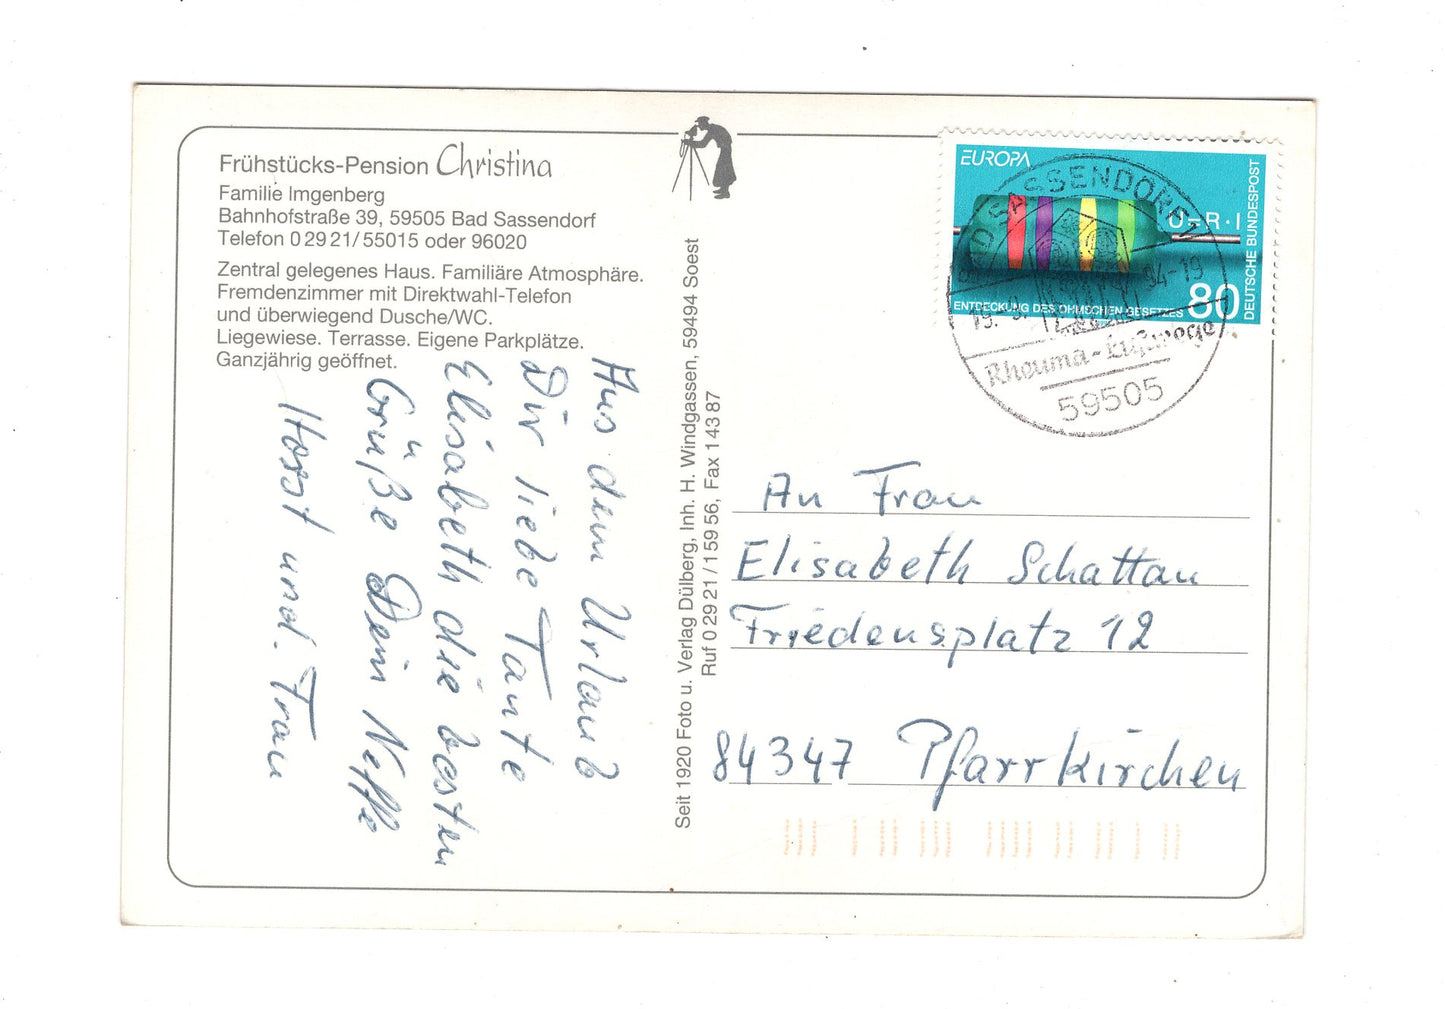 Frühstücks-Pension Christina
Familie Imgenberg
Bahnhofstraße 39, 59505 Bad Sassendorf
Telefon 0 29 21/55015 oder 96020
Zentral gelegenes Haus. Familiäre Atmosphäre.
Fremdenzimmer mit Direktwahl-Telefon
und überwiegend Dusche/WC.
Liegewiese. Terrasse. Eigene Parkplätze.
Ganzjährig geöffnet.
Aus dem Urlaub
Dir liebe Tante
Elisabeth die besten
Grüße Dein Neffe
Horst und. Frau
Seit 1920 Foto u. Verlag Dülberg, Inh. H. Windgassen, 59494 Soest
Ruf 0 29 21 / 159 56, Fax 1 43 87
EUROPA
U=R·I
ENTDECKUNG DES OHMSCHEN GESETZES
80
DEUTSCHE BUNDESPOST
SASSENDORF
94-19
Rheuma-
59505
An Frau
Elisabeth Schattau
Friedensplatz 12
84347 Pfarrkirchen